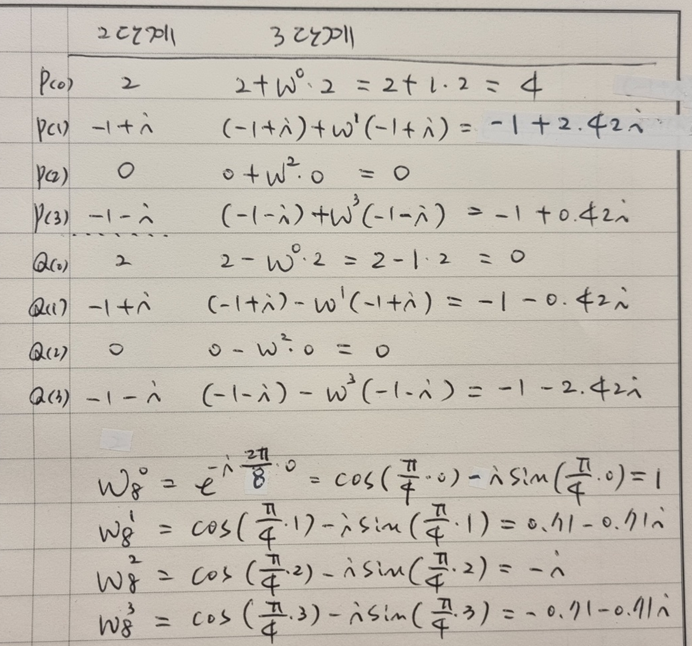 2단계까지 3단계까지
P(0) 2 2+W⁰·2 = 2+1·2 = 4
P(1) -1+i (-1+i)+W¹(-1+i) = -1+2.42i
P(2) 0 0+W²·0 = 0
P(3) -1-i (-1-i)+W³(-1-i) = -1+0.42i
Q(0) 2 2-W⁰·2 = 2-1·2 = 0
Q(1) -1+i (-1+i)-W¹(-1+i) = -1-0.42i
Q(2) 0 0-W²·0 = 0
Q(3) -1-i (-1-i)-W³(-1-i) = -1-2.42i
W₈⁰ = e^(-i 2π/8 ·0) = cos(π/4·0)-i sin(π/4·0) = 1
W₈¹ = cos(π/4·1)-i sin(π/4·1) = 0.71-0.71i
W₈² = cos(π/4·2)-i sin(π/4·2) = -i
W₈³ = cos(π/4·3)-i sin(π/4·3) = -0.71-0.71i